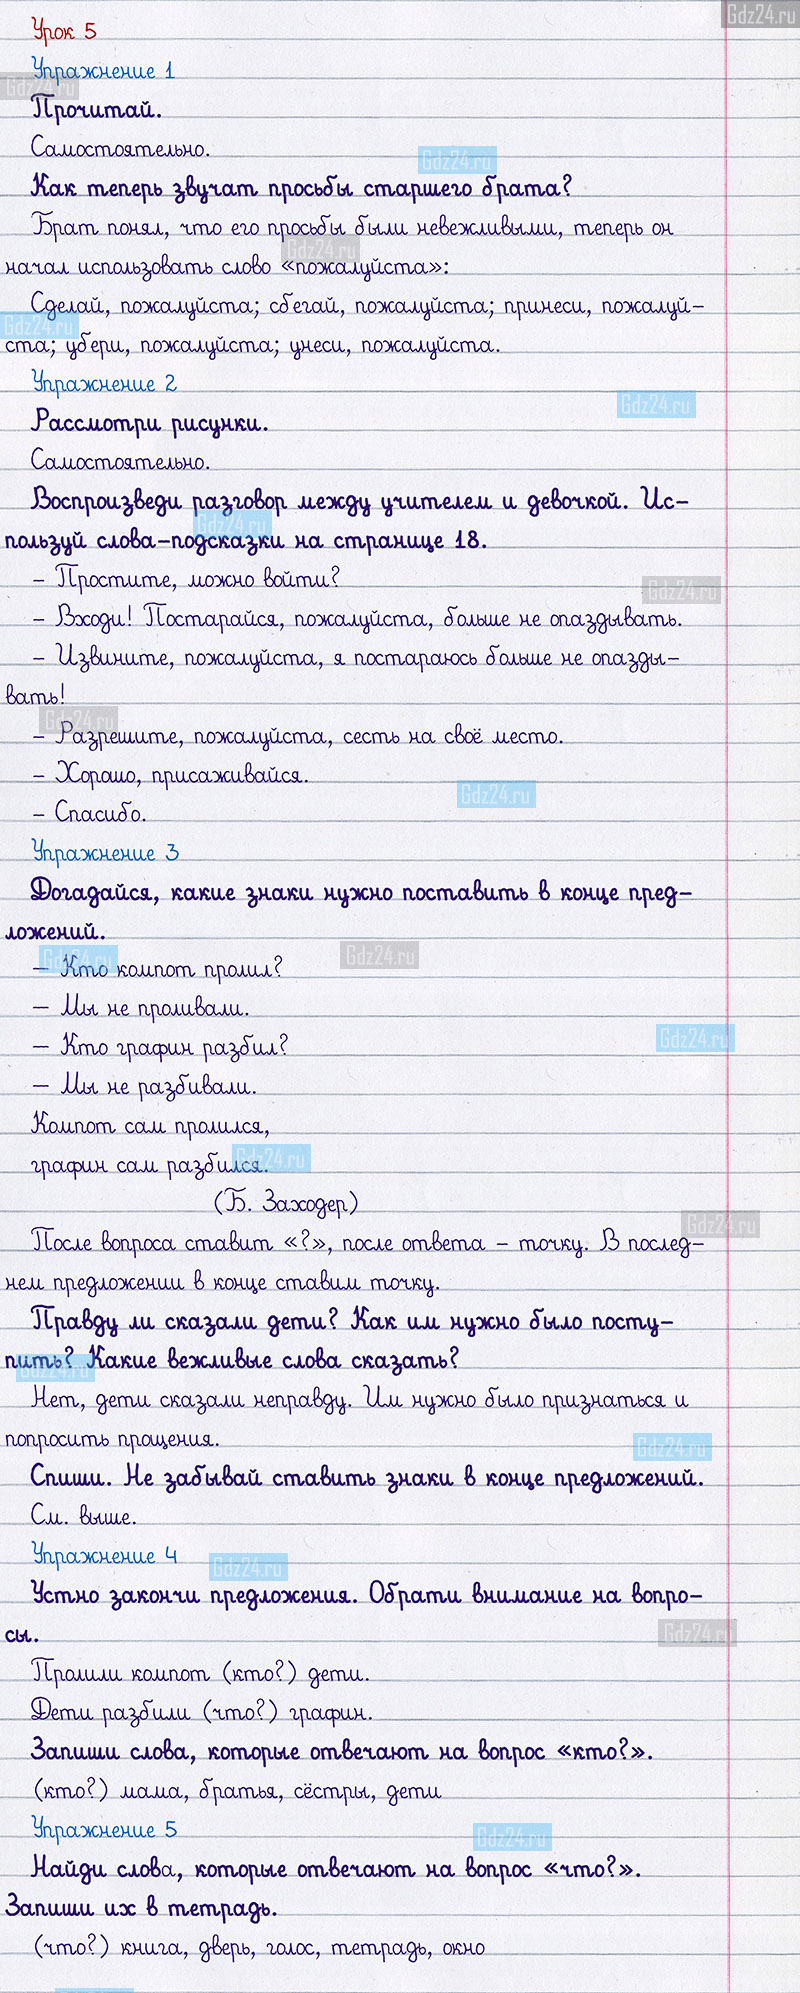 Gdz24.ru
Урок 5
Упражнение 1
Gdz24.ru
Прочитай.
Самостоятельно.
Gdz24.ru
Как теперь звучат просьбы старшего брата?
Брат понял, что его просьбы были невежливыми, теперь он
Gdz24.ru
начал использовать слово «пожалуйста»:
Сделай, пожалуйста; сбегай, пожалуйста; принеси, пожалуй-
Gdz24.ru
ста; убери, пожалуйста; унеси, пожалуйста.
Упражнение 2
Gdz24.ru
Рассмотри рисунки.
Самостоятельно.
Воспроизведи разговор между учителем и девочкой. Ис-
Gdz24.ru
пользуй слова-подсказки на странице 18.
- Простите, можно войти?
Gdz24.ru
- Входи! Постарайся, пожалуйста, больше не опаздывать.
- Извините, пожалуйста, я постараюсь больше не опазды-
вать!
Gdz24.ru
- Разрешите, пожалуйста, сесть на своё место.
- Хорошо, присаживайся.
Gdz24.ru
- Спасибо.
Упражнение 3
Догадайся, какие знаки нужно поставить в конце пред-
ложений.
Gdz24.ru
Gdz24.ru
- Кто компот пролил?
- Мы не проливали.
Gdz24.ru
- Кто графин разбил?
- Мы не разбивали.
Компот сам пролился,
Gdz24.ru
графин сам разбился.
(Б. Заходер)
Gdz24.ru
После вопроса ставит «?», после ответа - точку. В послед-
нем предложении в конце ставим точку.
Правду ли сказали дети? Как им нужно было посту-
пить? Какие вежливые слова сказать?
Gdz24.ru
Нет, дети сказали неправду. Им нужно было признаться и
попросить пращения.
Gdz24.ru
Спиши. Не забывай ставить знаки в конце предложений.
См. выше.
Упражнение 4
Gdz24.ru
Устно закончи предложения. Обрати внимание на вопро-
сы.
Gdz24.ru
Пролили компот (кто?) дети.
Дети разбили (что?) графин.
Запиши слова, которые отвечают на вопрос «кто?».
(кто?) мама, братья, сёстры, дети
Упражнение 5
Gdz24.ru
Найди слова, которые отвечают на вопрос «что?».
Запиши их в тетрадь.
(что?) книга, дверь, голос, тетрадь, окно